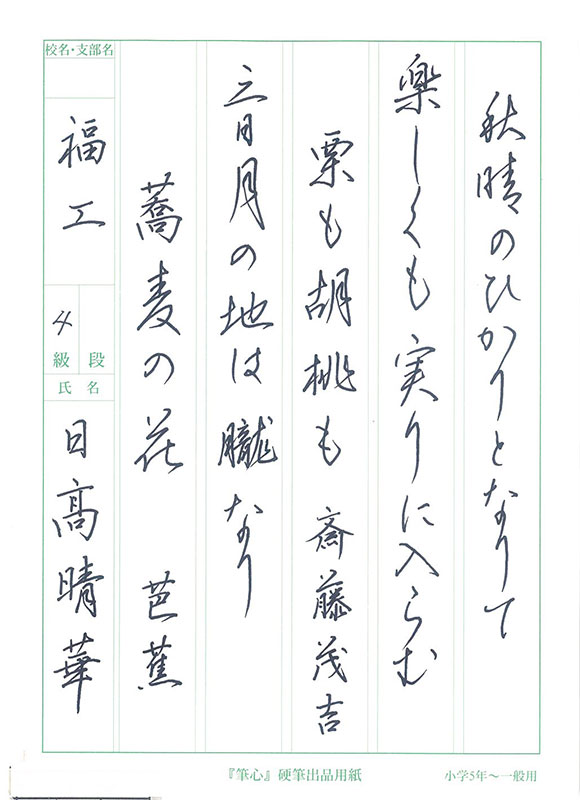 秋晴のひかりとなりて
楽しくも実りに入らむ
栗も胡桃も 斎藤茂吉
三日月の地は朧なり
蕎麦の花 芭蕉
校名・支部名
福工
段
4級
氏名
日髙晴華
『筆心』硬筆出品用紙
小学5年～一般用